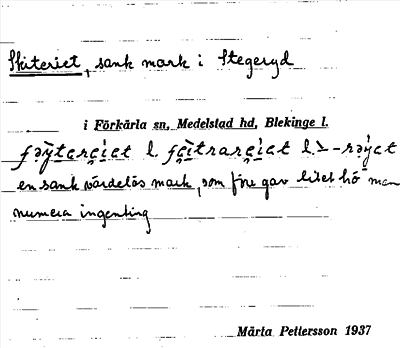 Skiteriet, sank mark i Stegeryd
i Förkärla sn, Medelstad hd, Blekinge l.
l. l.
en sank värdelös mark, som före gav litet hö men
numera ingenting
Märta Pettersson 1937